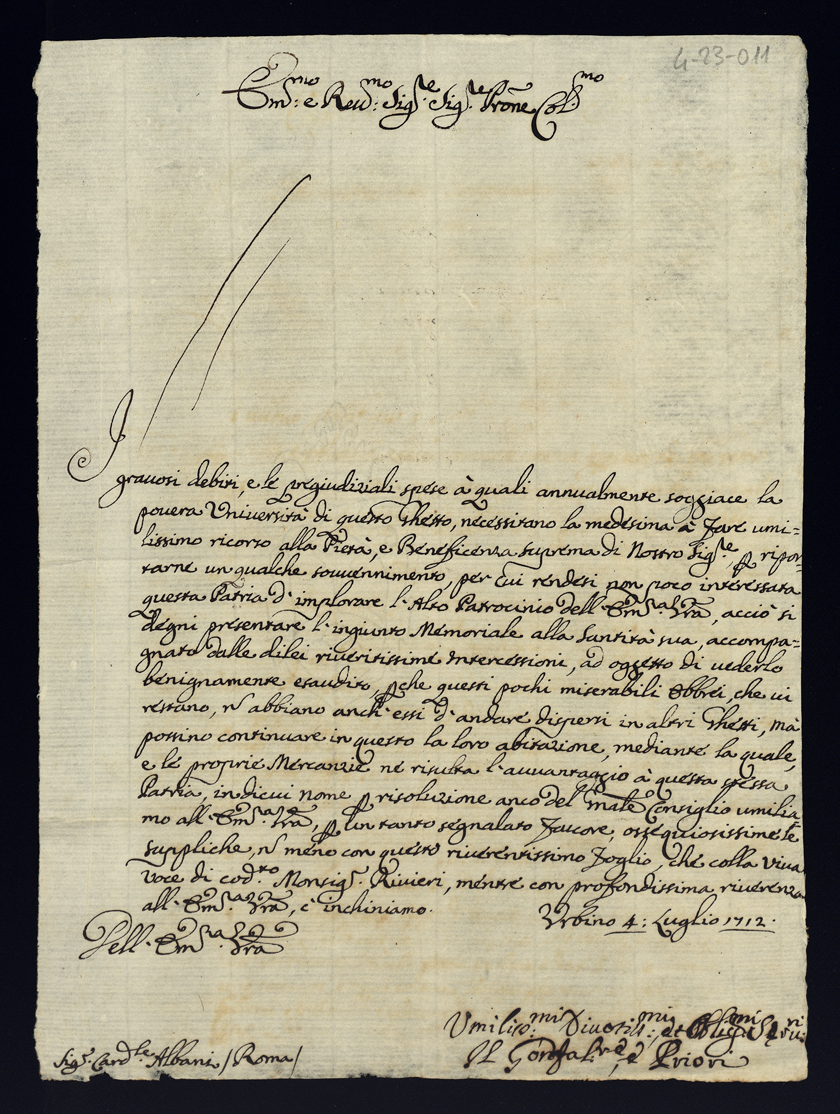 4-23-011
Em.mo e Reu.mo Sig.re Sig.re Prõne Col.mo
I
grauosi debiti, e le pregiudiziali spese à quali annualmente soggiace la
pouera Uniuersità di questo Ghetto, necessitano la medesima à fare umi=
lissimo ricorso alla Pietà, e Beneficenza suprema di Nostro Sig.re p ripor=
tarne un qualche souuennimento, per cui rendesi non poco interessata
questa Patria d'implorare l'Alto Patrocinio dell'Em.a Vrã, acciò si
degni presentare l'ingiunto Memoriale alla Santità sua, accompa=
gnato dalle dilei riueritissime Intercessioni, ad oggetto di uederlo
benignamente esaudito, pche questi pochi miserabili Ebbrei, che ui
restano, ñ abbiano anch'essi d'andare dispersi in altri Ghetti, mà
possino continuare in questo la loro abitazione, mediante la quale,
e le proprie Mercanzie ne risulta l'auuantaggio à questa stessa
Patria, in dicui nome p risoluzione anco del gñale Consiglio umilia
mo all'Em.a Vrã, p un tanto segnalato Fauore, ossequiosissime le
suppliche, ñ meno con questo riuerentissimo Foglio, che colla uiua
uoce di cod.to Monsig.r Riuieri, mentre con profondissima riuerenza
all'Em.a Vrã, c'inchiniamo.
Vrbino 4: Luglio 1712.
Dell'Em.a Vrã
Umiliss.mi Diuotiss.mi, et Oblig.mi Seru.ri
Il Gonfal.re, e Priori
Sig.r Card.le Albani /Roma/